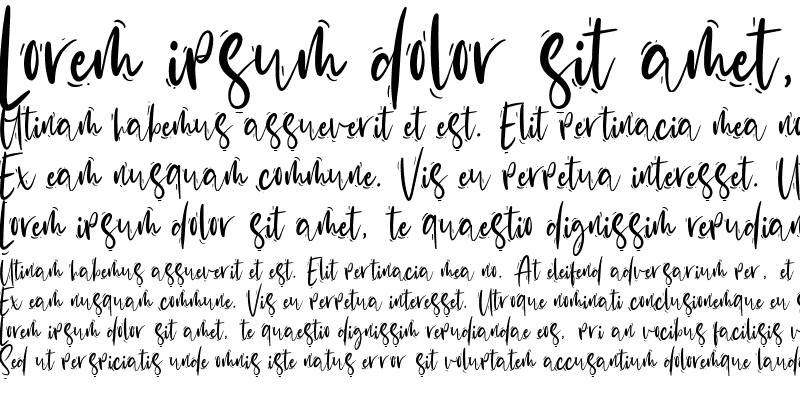 Lorem ipsum dolor sit amet,
Utinam habemus assueverit et est. Elit pertinacia mea no
Ex eam nusquam commune. Vis eu perpetua interesset. U
Lorem ipsum dolor sit amet, te quaestio dignissim repudian
Utinam habemus assueverit et est. Elit pertinacia mea no. At eleifend adversarium per, et
Ex eam nusquam commune. Vis eu perpetua interesset. Utroque nominati conclusionemque eu s
Lorem ipsum dolor sit amet, te quaestio dignissim repudiandae eos, pri an vocibus facilisis v
Sed ut perspiciatis unde omnis iste natus error sit voluptatem accusantium doloremque lauda